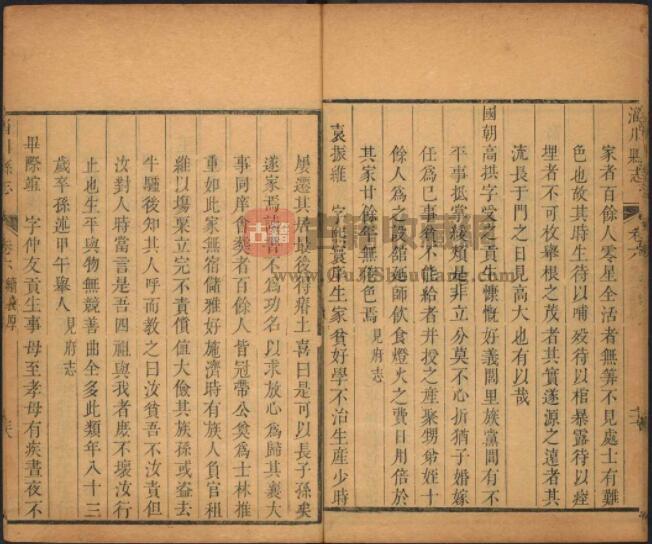 淄川縣志 卷六
家者百餘人零星全活者無筭不見處士有難
色也故其時生待以哺歿待以棺暴露待以瘞
埋者不可枚舉根之茂者其實遂源之遠者其
流長于門之日見高大也有以哉
國朝高拱字愛之貢生慷慨好義閭里族黨間有不
平事抵掌緩頰是非立分莫不心折猶子婚嫁
任為已事貧不能給者并授之產聚甥弟姪十
餘人為之設舘延師飲食燈火之費日用倍於
其家廿餘年無倦色焉 見府志
袁振 字熙寰庠生家貧好學不治生產少時
屢遷其居最後得瘠土喜曰是可以長子孫矣
遂家焉讀書不為功名以求放心為歸其襄大
事同庠會奠者百餘人皆冠帶公奠為士林推
重如此家無宿儲雅好施濟時有族人負官租
以塲粟立完不責償值大儉其族孫或盜去
牛驢後知其人呼而教之曰汝貧吾不汝責但
汝對人時當言是吾四祖與我者庶不壞汝行
止也生平與物無競善曲全多此類年八十三
歲卒孫述甲午舉人 見府志
畢際 字仲友貢生事母至孝母有疾晝夜不
淄川縣志 卷六 續
古籍
古籍收藏網